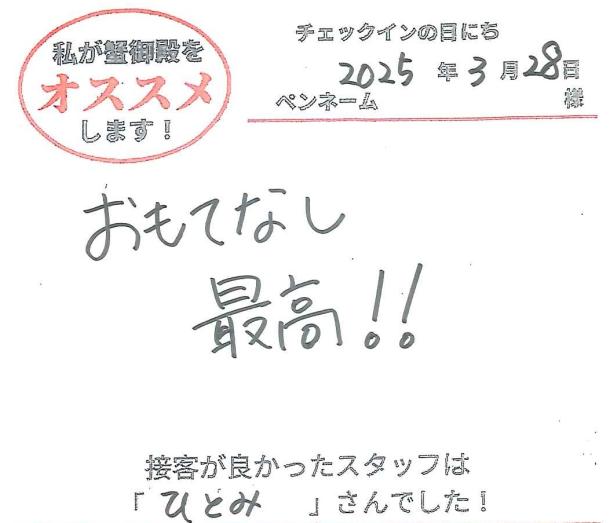 私が蟹御殿を
オススメ
します！
チェックインの日にち
2025 年 3 月 28 日
ペンネーム 様
おもてなし
最高!!
接客が良かったスタッフは
「 ひとみ 」さんでした！